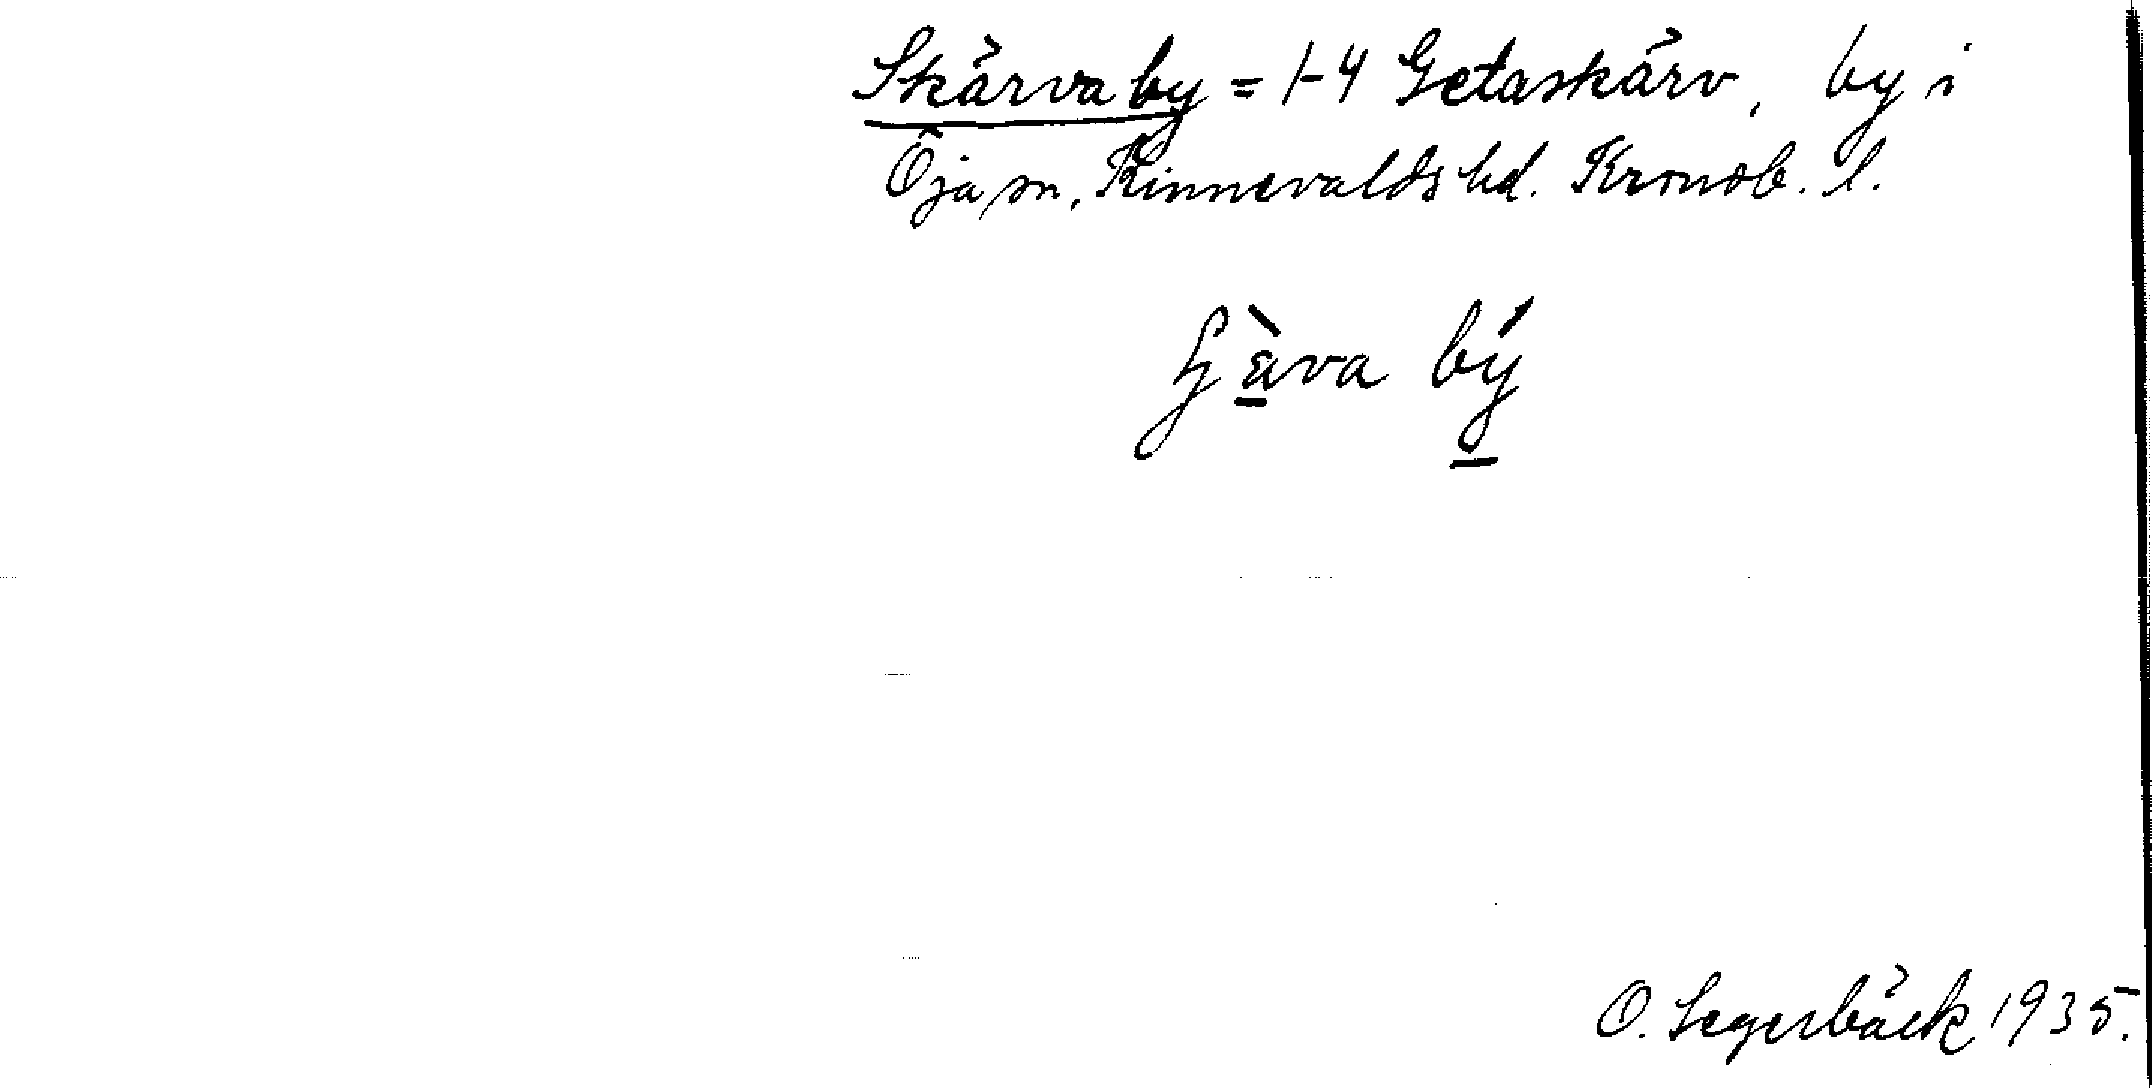 Skärvaby = 1-4 Getaskärv, by i
Öja sn, Kinnevalds hd. Kronob. l.
ɧὲva bý
O. Segerbäck 1935.